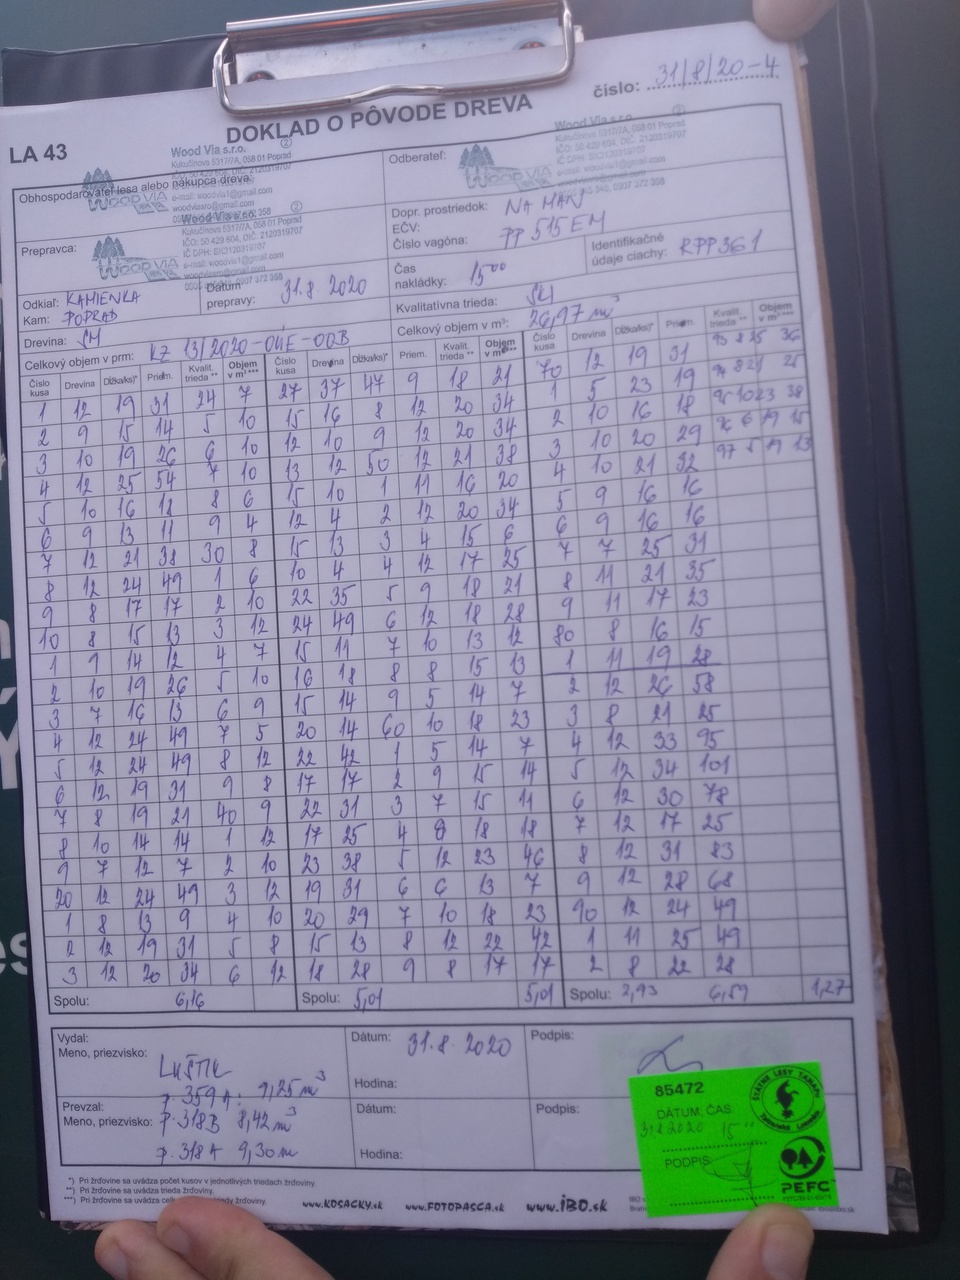 číslo: 31/8/20-4
DOKLAD O PÔVODE DREVA
LA 43
Wood Via s.r.o.
Kukučínova 5317/7A, 058 01 Poprad
Obhospodarovateľ lesa alebo nákupca dreva:
WOOD VIA
e-mail: woodvia1@gmail.com
Odberateľ:
Wood Via s.r.o.
Kukučínova 5317/7A, 058 01 Poprad
WOOD VIA
Prepravca:
Wood Via s.r.o.
Kukučínova 5317/7A, 058 01 Poprad
IČO: 50 429 604, DIČ: 2120319707
IČ DPH: SK2120319707
WOOD VIA
Dopr. prostriedok: NA MAN
EČV: PP 515 EM
Číslo vagóna:
Odkiaľ: KAMIENKA
Kam: POPRAD
Dátum prepravy: 31.8.2020
Čas nakládky: 15⁰⁰
Identifikačné údaje ciachy: RPP361
Drevina: SM
Kvalitatívna trieda:
Celkový objem v prm: KZ 13/2020-04E-00B
Celkový objem v m³: 26,97 m³
Číslo kusa Drevina Dĺžka/ks)* Priem. Kvalit. trieda ** Objem v m³ ***
1 12 19 31 24 7
2 9 15 14 5 10
3 10 19 26 6 10
4 12 25 54 7 10
5 10 16 18 8 6
6 9 13 11 9 4
7 12 21 38 30 8
8 12 24 49 1 6
9 8 17 17 2 10
10 8 15 13 3 12
1 9 14 12 4 7
2 10 19 26 5 10
3 7 16 13 6 9
4 12 24 49 7 5
5 12 24 49 8 12
6 12 19 31 9 8
7 8 19 21 40 9
8 10 14 14 1 12
9 7 12 7 2 10
20 12 24 49 3 12
1 8 13 9 4 10
2 12 19 31 5 8
3 12 20 34 6 12
Spolu: 6,16
Číslo kusa Drevina Dĺžka/ks)* Priem. Kvalit. trieda ** Objem v m³ ***
27 37 47 9 18 21
15 16 8 12 20 34
12 10 9 12 20 34
13 12 50 12 21 38
15 10 1 11 16 20
12 4 2 12 20 34
15 13 3 4 15 6
10 4 4 12 17 25
22 35 5 9 18 21
24 49 6 12 18 28
15 11 7 10 13 12
16 18 8 8 15 13
15 14 9 5 14 7
20 14 60 10 18 23
22 42 1 5 14 7
17 17 2 9 15 14
22 31 3 7 15 11
17 25 4 8 18 18
23 38 5 12 23 46
19 31 6 6 13 7
20 29 7 10 18 23
15 13 8 12 22 42
18 28 9 8 17 17
Spolu: 5,01 5,01
Číslo kusa Drevina Dĺžka/ks)* Priem. Kvalit. trieda ** Objem v m³ ***
70 12 19 31 93 8 25 36
1 5 23 19 94 8 21 25
2 10 16 18 95 10 23 38
3 10 20 29 96 6 19 15
4 10 21 32 97 5 19 13
5 9 16 16
6 9 16 16
7 7 25 31
8 11 21 35
9 11 17 23
80 8 16 15
1 11 19 28
2 12 26 58
3 8 21 25
4 12 33 95
5 12 34 101
6 12 30 78
7 12 17 25
8 12 31 83
9 12 28 68
90 12 24 49
1 11 25 49
2 8 22 28
Spolu: 2,93 6,59 1,27
Vydal:
Meno, priezvisko:
Dátum: 31.8.2020
Hodina:
Podpis:
p. 359 A: 9,25 m³
Prevzal:
Meno, priezvisko: p. 318B 8,42 m³
p. 318 A 9,30 m
Dátum:
Hodina:
Podpis:
85472
DÁTUM, ČAS
31.8.2020 15
PODPIS
ŠTÁTNE LESY TANAPu
PEFC
*) Pri žrďovine sa uvádza počet kusov v jednotlivých triedach žrďoviny.
**) Pri žrďovine sa uvádza trieda žrďoviny.
www.KOSACKY.sk www.FOTOPASCA.sk www.iBO.sk